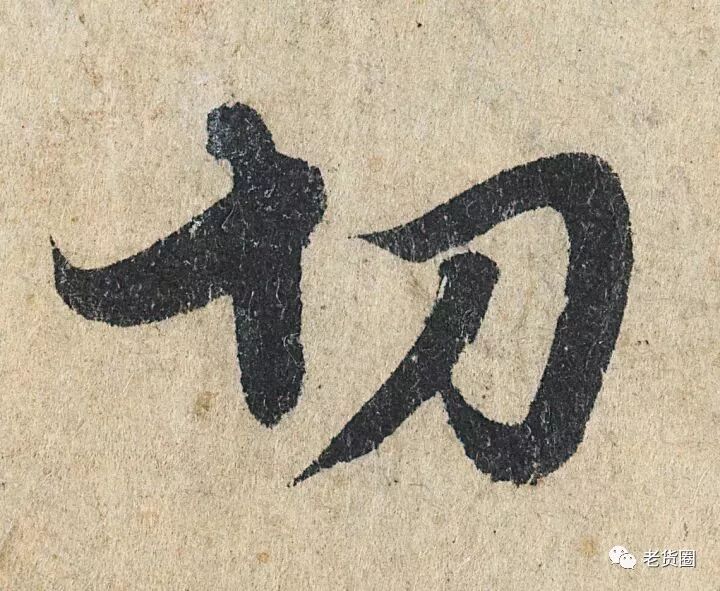 切
老货圈